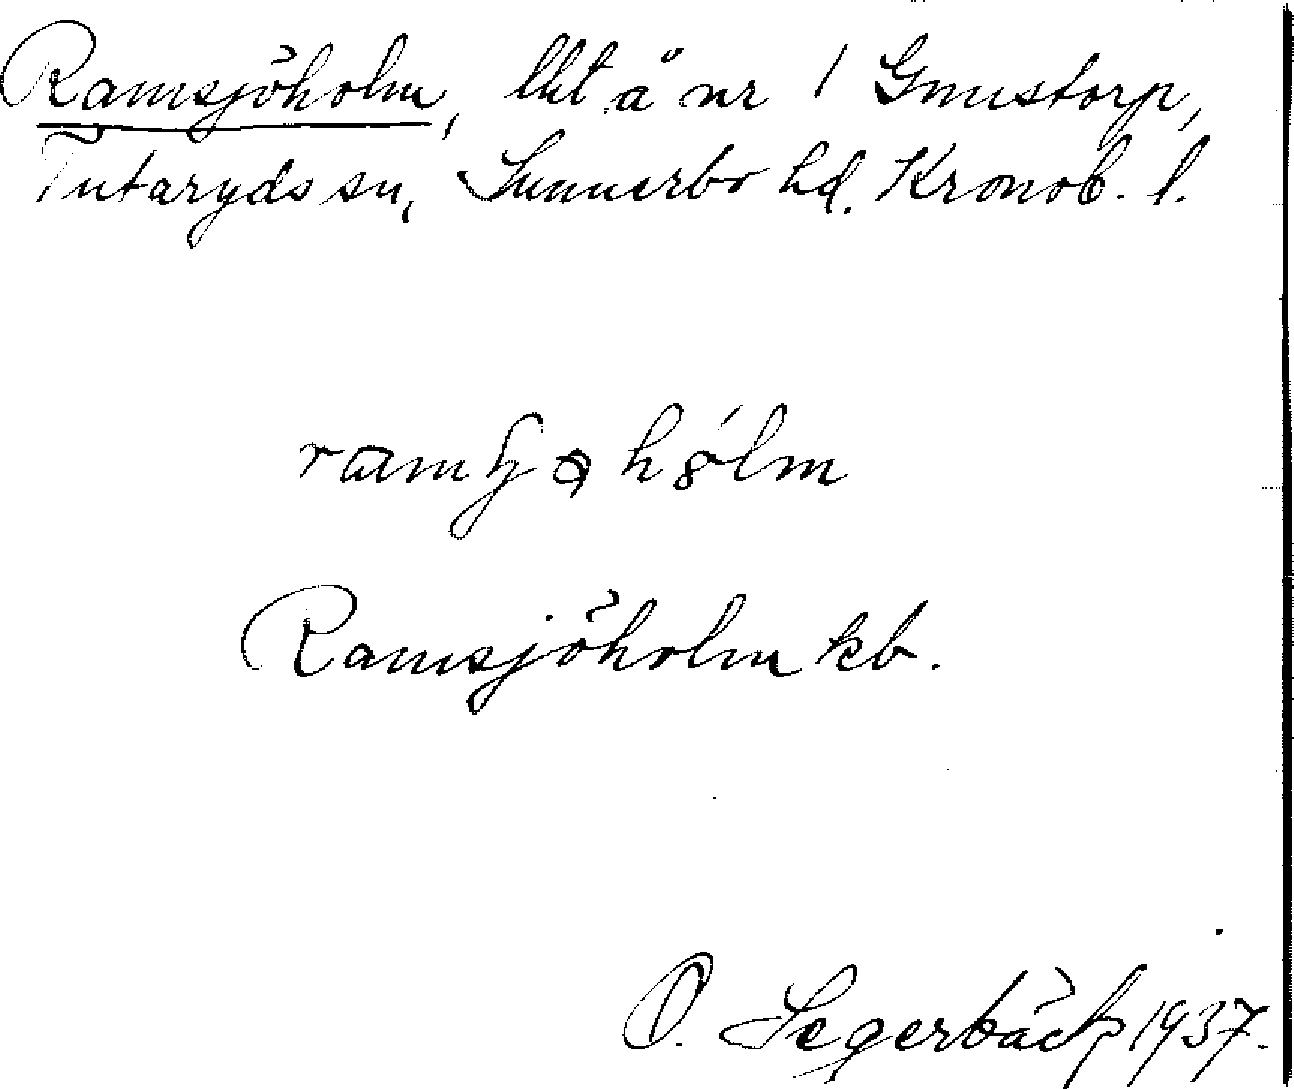 Ramsjöholm, lht å nr 1 Gnustorp,
Tutaryds sn, Sunnerbo hd. Kronob. l.
Ramsjöholm kb.
O. Segerbäck 1937.